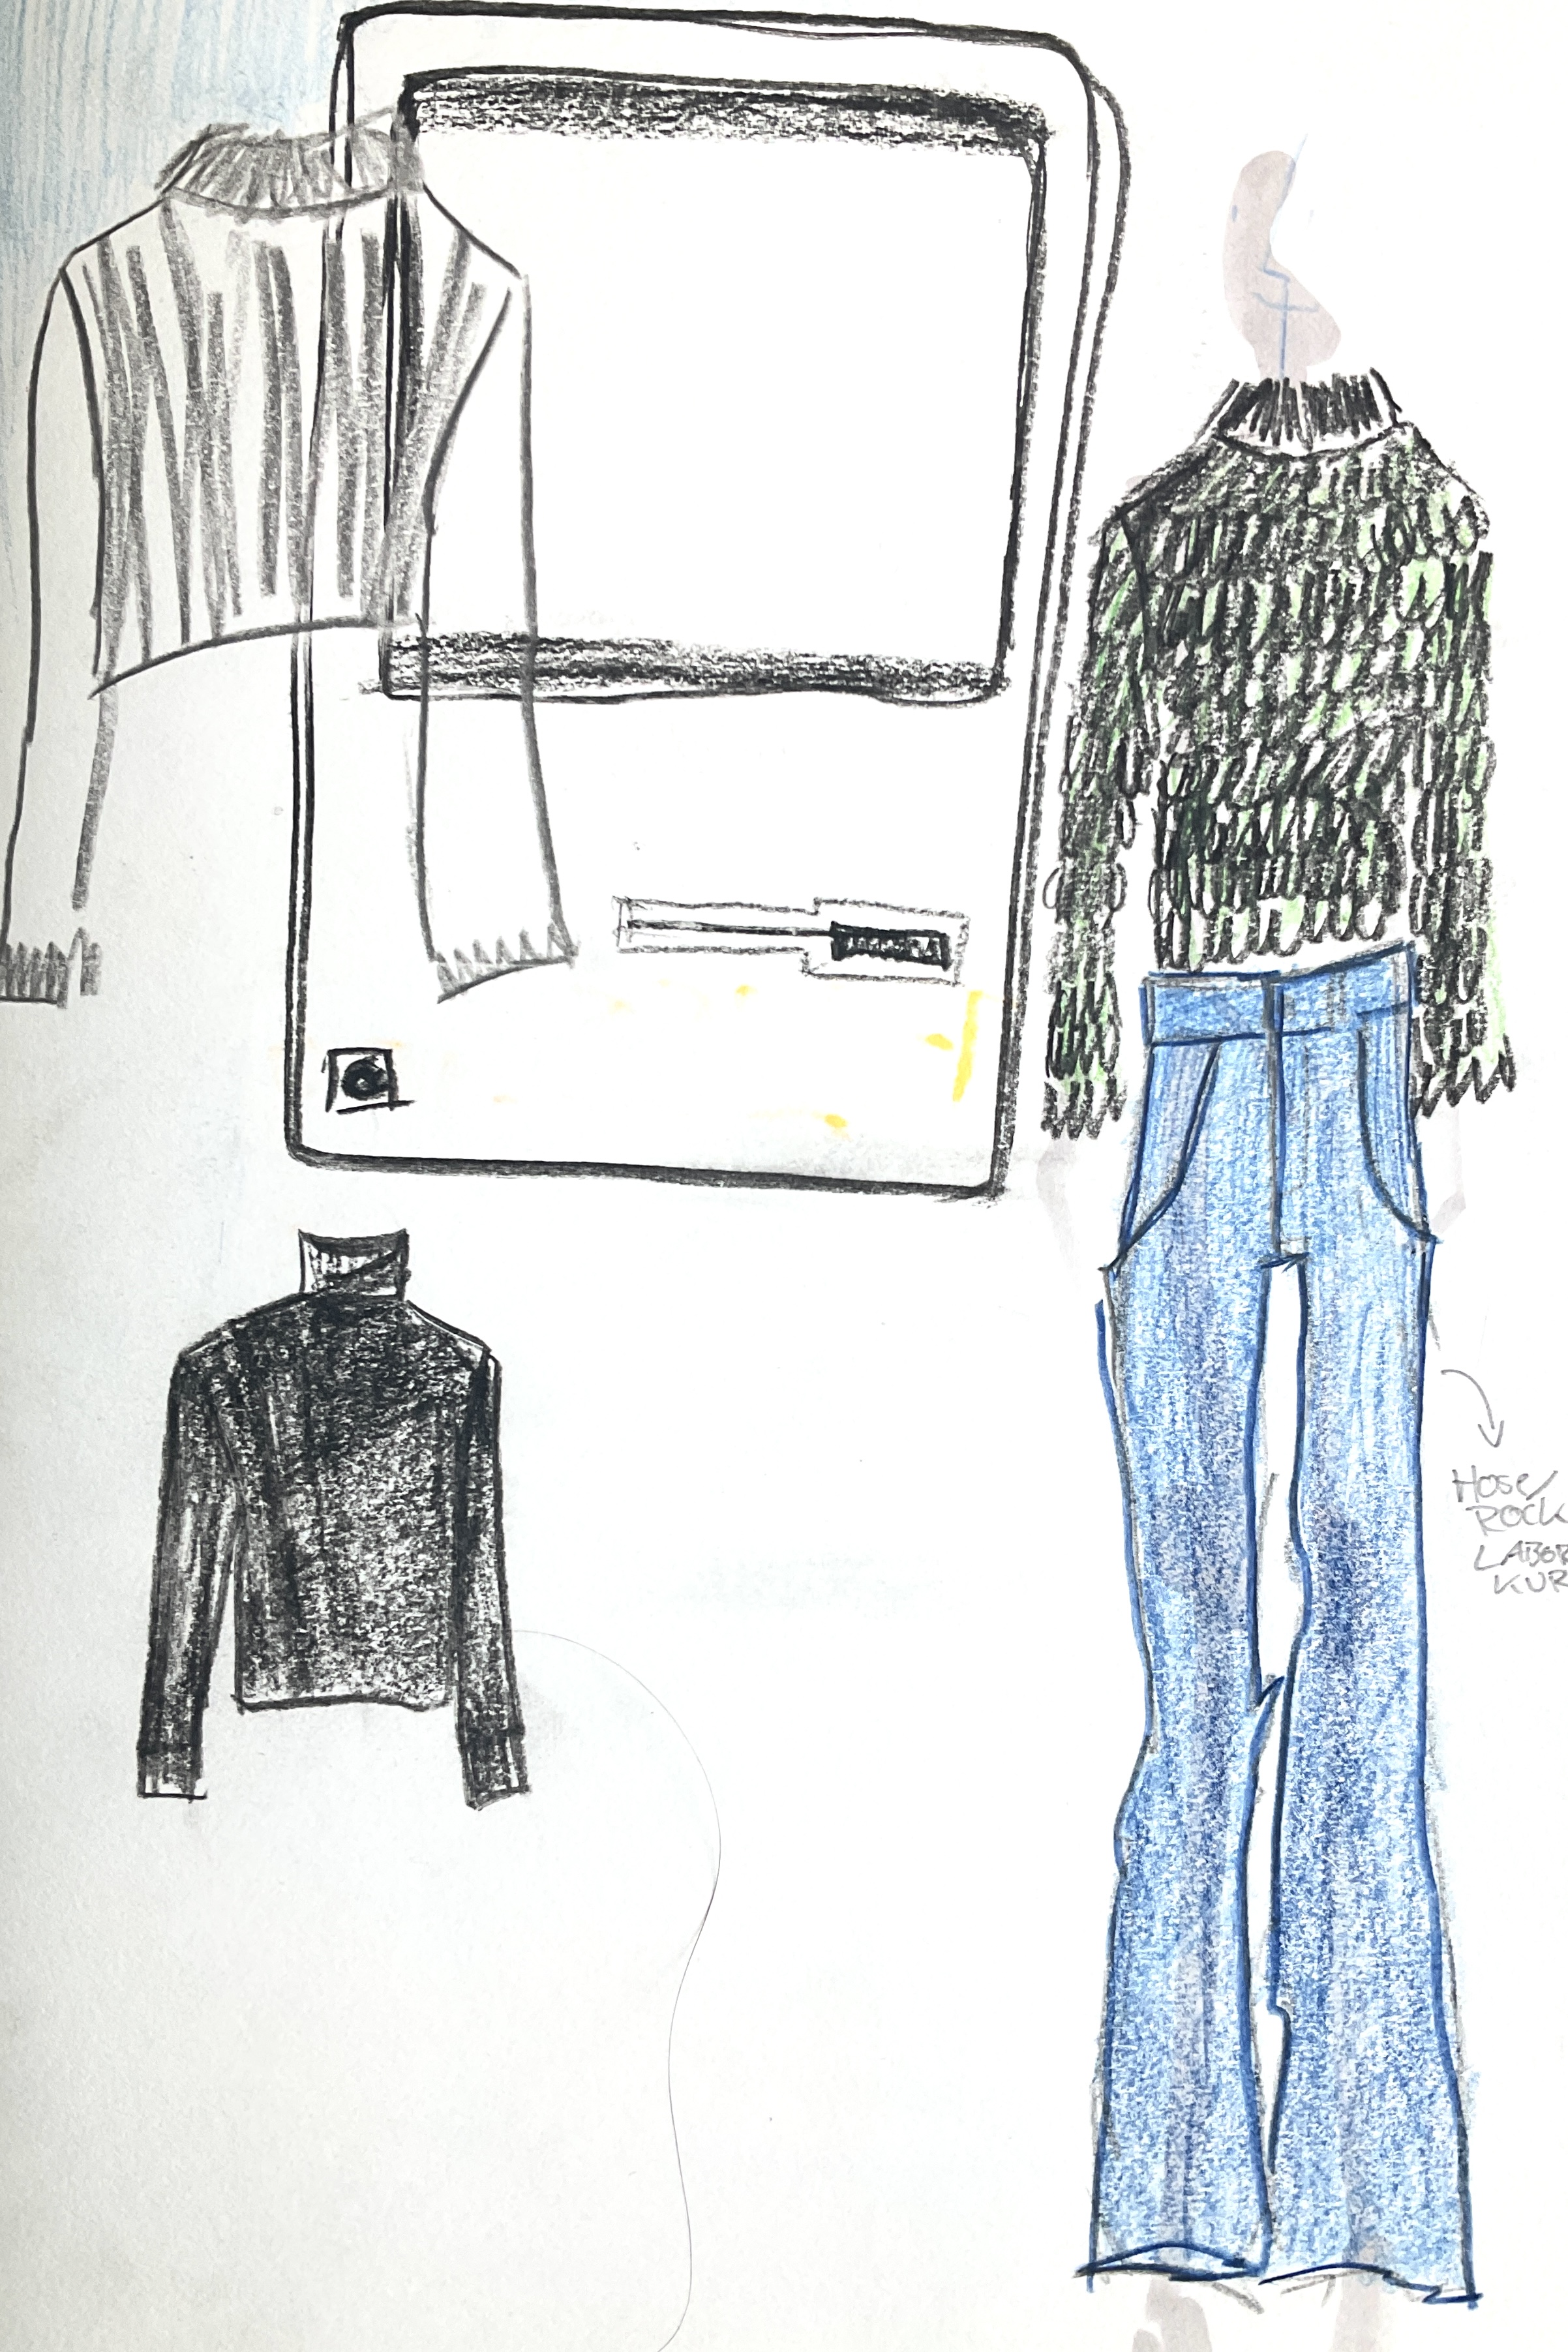 HOSE/
ROCK
LABOR
KUR